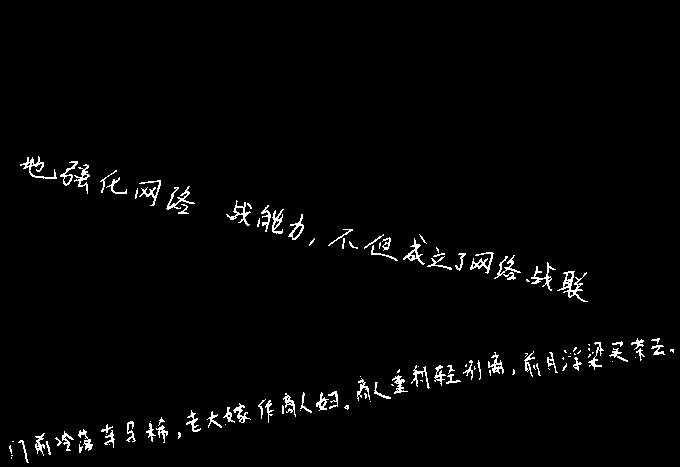 地强化网络 战能力，不但成立了网络战联
门前冷落车马稀，老大嫁作商人妇。商人重利轻别离，前月浮梁买茶去。